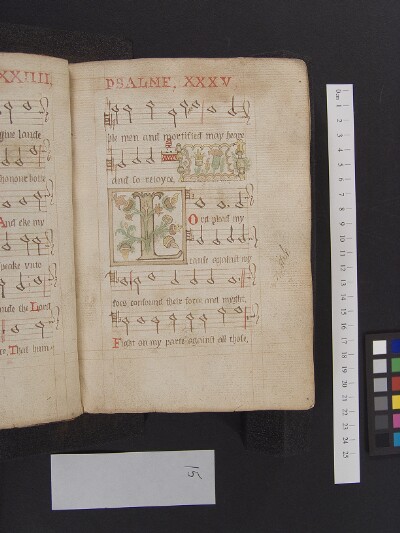 XXIIII,
gue laude
honour bothe
And eke my
peake vnto
aude the Lord
ce, That hum
PSALME, XXXV
ble men and mortified may heare
and so reioyce,
L
Ord plead my
cause against my
foes confound their force and myght,
Fight on my parte against all those,
15